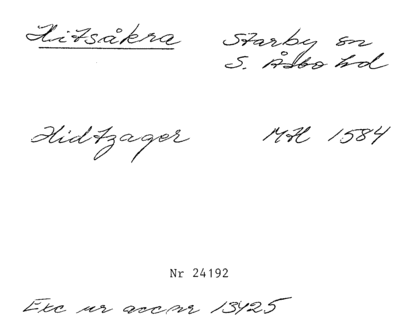 Hitsåkra Starby sn
S. Åsbo hd
Hidtzager MH 1584
Nr 24192
Exc ur acc nr 13425